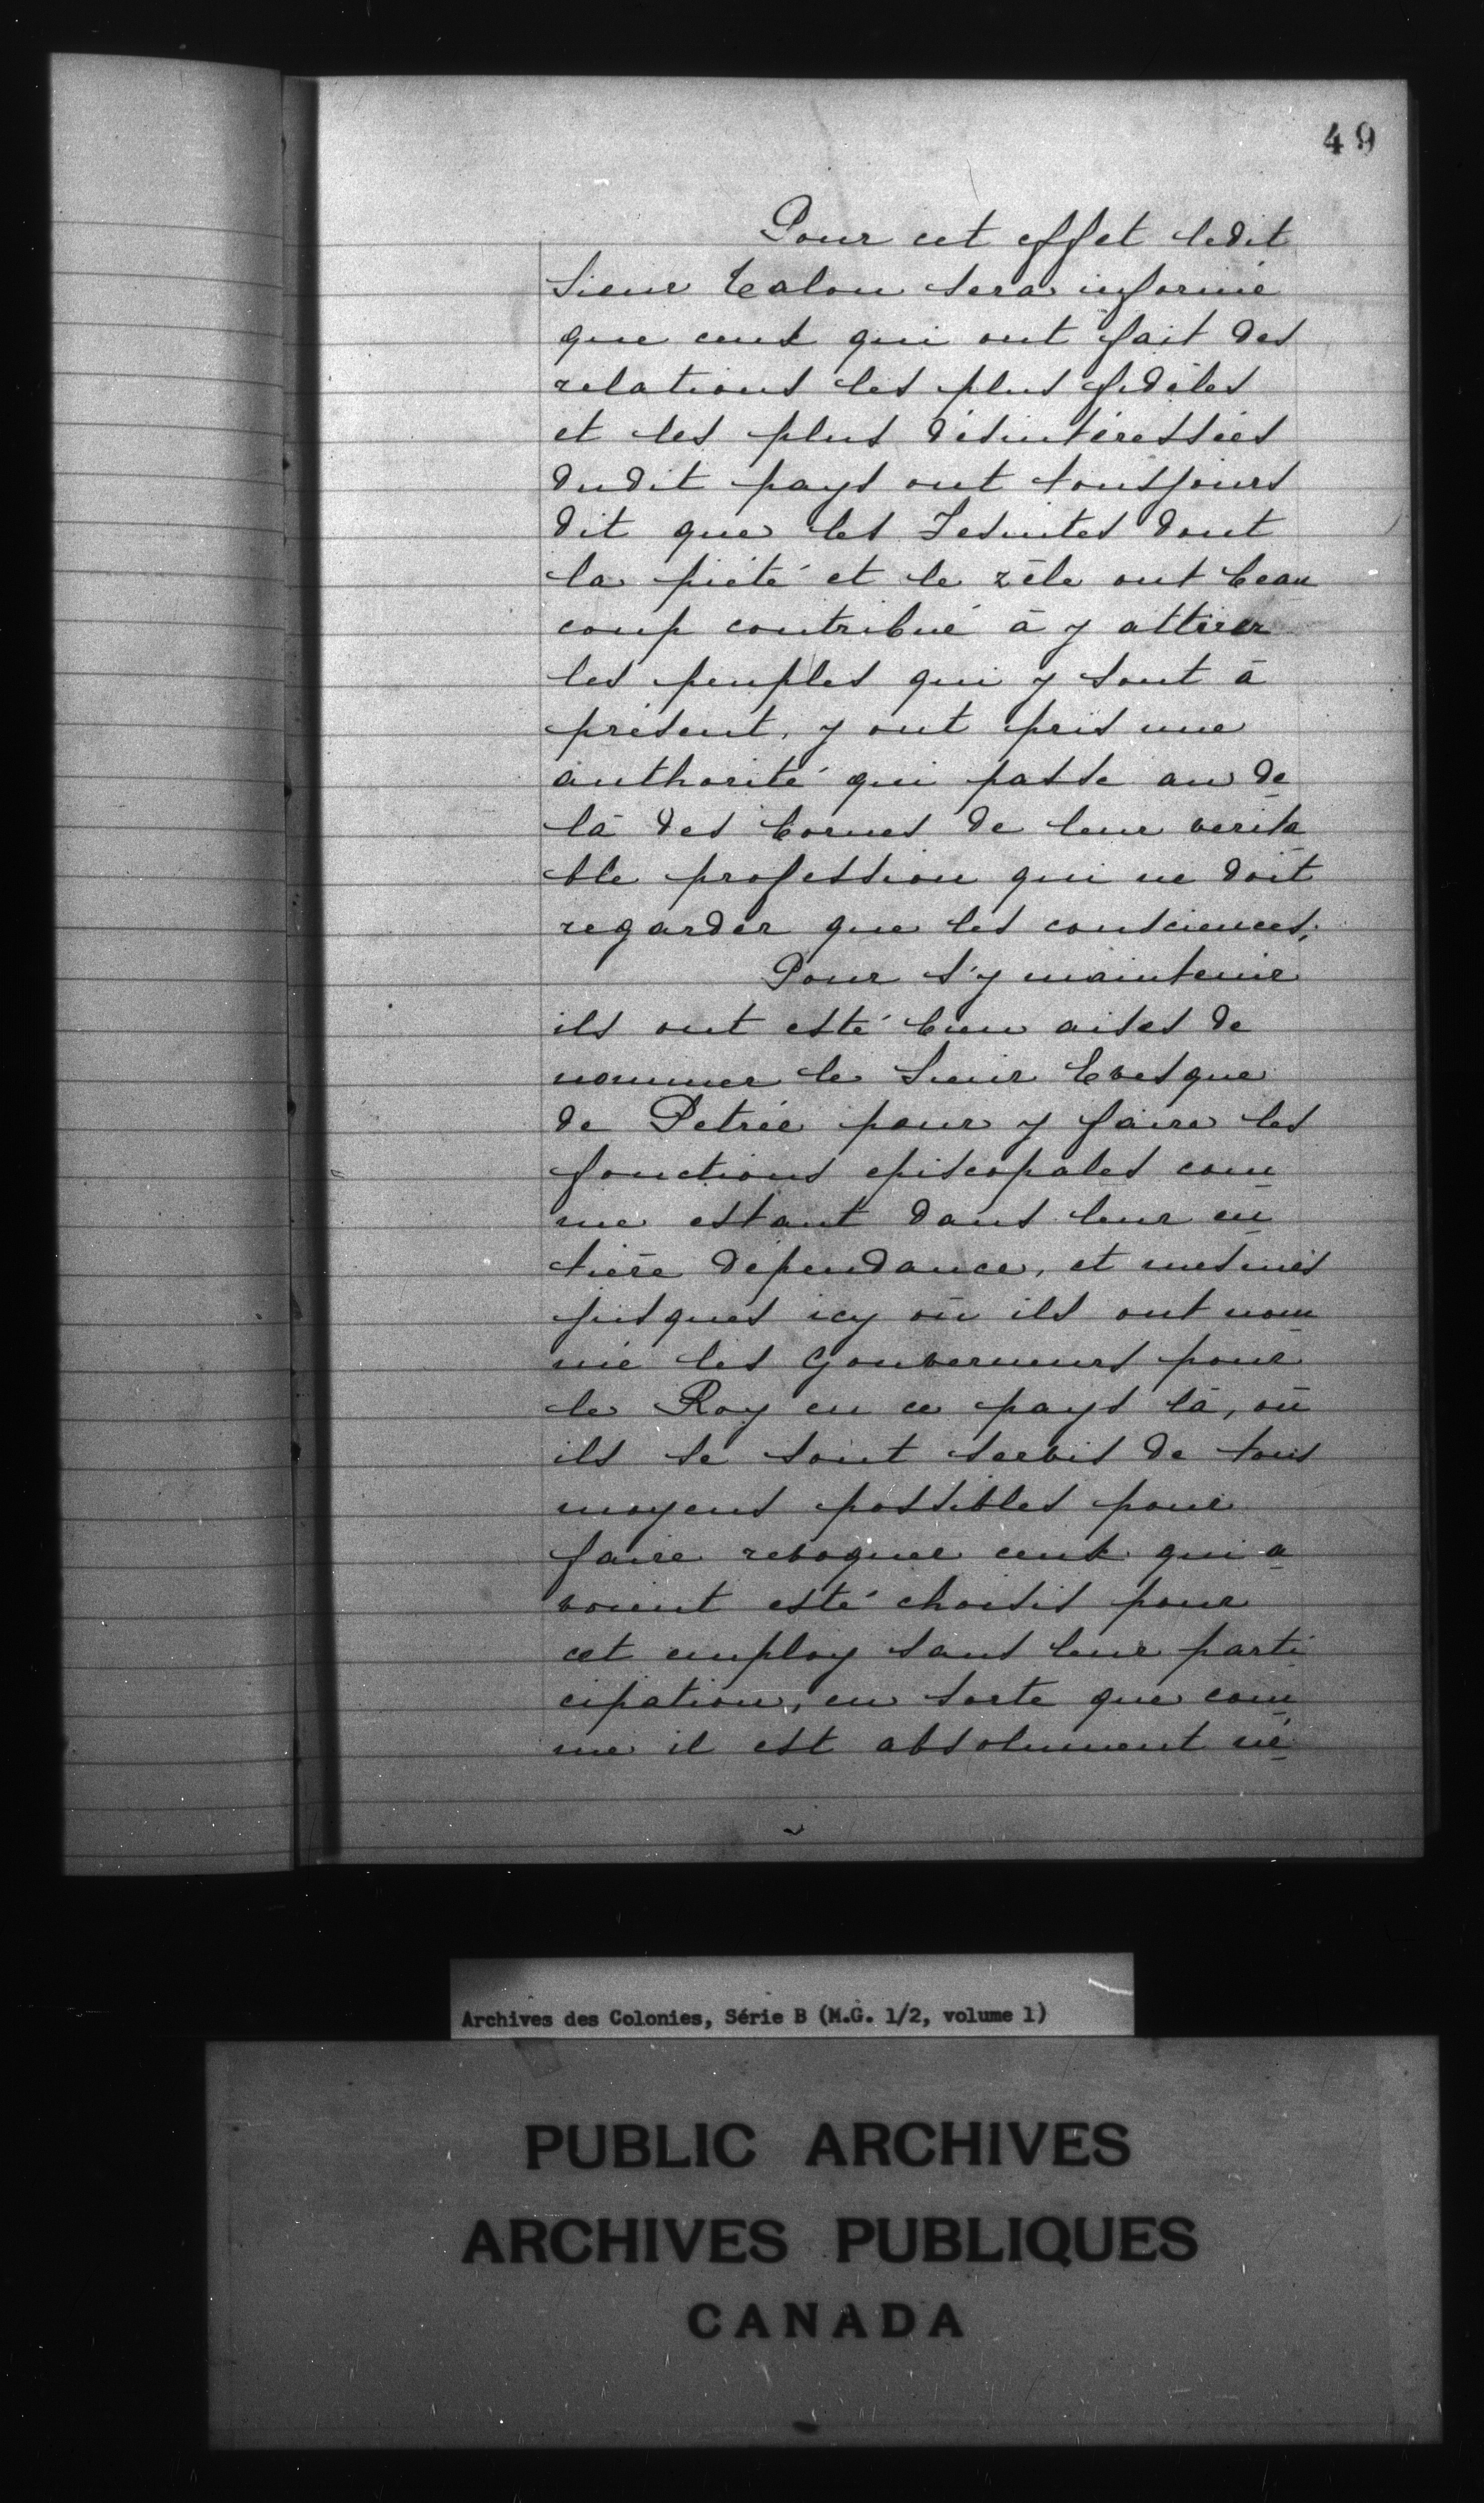 49
Pour cet effet ledit
Sieur Talon sera informé
que ceux qui ont fait des
relations les plus fidèles
et les plus désintéressées
dudit pays ont tousjours
dit que les Jesuites dont
la piété et le zèle ont beau
coup contribué à y attirer
les peuples qui y sont à
présent, y ont pris une
authorité qui passe au de
là des bornes de leur verita
ble profession qui ne doit
regarder que les consciences.
Pour s'y maintenir
ils ont esté bien aises de
nommer le Sieur Evesque
de Petrée pour y faire les
fonctions episcopales com
me estant dans leur en
tière dépendance, et mesmes
jusques icy où ils ont nom
mé les Gouverneurs pour
le Roy en ce pays là, où
ils se sont servis de tous
moyens possibles pour
faire revoquer ceux qui a
voient esté choisis pour
cet employ sans leur parti
cipation, en sorte que com
me il est absolument né
Archives des Colonies, Série B (M.G. 1/2, volume 1)
PUBLIC ARCHIVES
ARCHIVES PUBLIQUES
CANADA